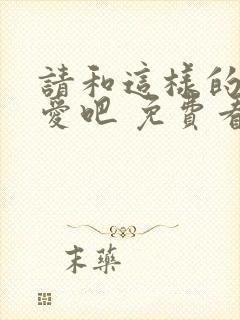 請和這樣的
愛吧 免費看
末藥